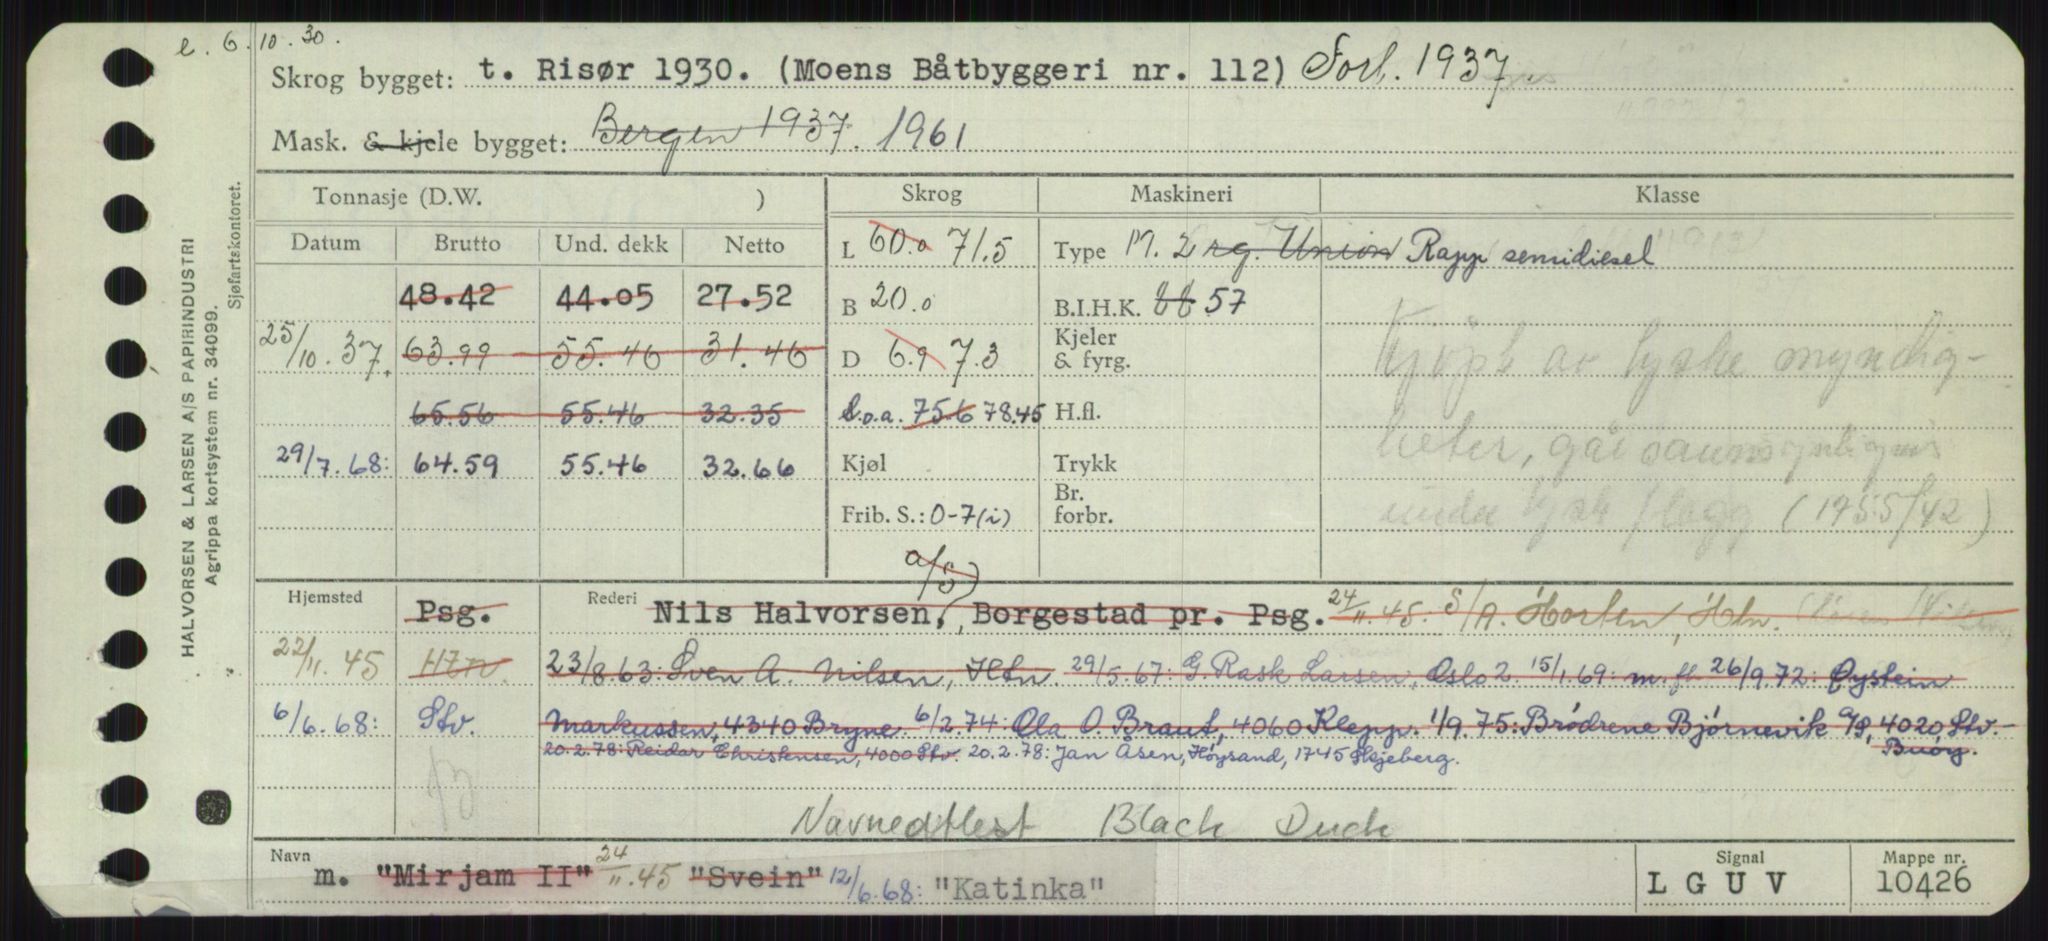 e. 6.10.30.
Skrog bygget: t. Risør 1930. (Moens Båtbyggeri nr. 112) Forl. 1937.
Mask. & kjele bygget: Bergen 1937. 1961
Tonnasje (D.W. ) Skrog Maskineri Klasse
Datum Brutto Und. dekk Netto L 60.0 71.5 Type M. Union Rapp semidiesel
48.42 44.05 27.52 B 20.0 B.I.H.K. 57
25/10.37. 63.99 55.46 31.46 D 6.9 7.3 Kjeler & fyrg. Kjøpt av tyske myndig-
65.56 55.46 32.35 L.o.a. 75.6 78.45 H.fl.
29/7.68: 64.59 55.46 32.66 Kjøl Trykk heter, går sannsynligvis
Frib. S.: 0-7(i) Br. forbr. under tysk flagg (1955/42)
a/s)
Hjemsted Psg. Rederi Nils Halvorsen, Borgestad pr. Psg. 24/11.45. S/A. Horten, Htn.
22/11.45 Htn. 23/8.63: Sven A. Nilsen, Htn. 29/5.67: G. Rask Larsen, Oslo 2. 15/1.69: m.fl 26/9.72: Øystein
6/6.68: Stv. Markussen, 4340 Bryne. 6/2.74: Ola O. Braut, 4060 Klepp. 1/9.75: Brødrene Bjørnevik a/s, 4020 Stv.-
Buøy.
20.2.78: Reidar Christensen, 4000 Stv. 20.2.78: Jan Asen, Høysand, 1745 Skjeberg.
Navnedtlest Black Duck
Navn m. "Mirjam II" 24/11.45 "Svein" 12/6.68: "Katinka" Signal LGUV Mappe nr. 10426
HALVORSEN & LARSEN A/S PAPIRINDUSTRI
Agrippa kortsystem nr. 34099.
Sjøfartskontoret.